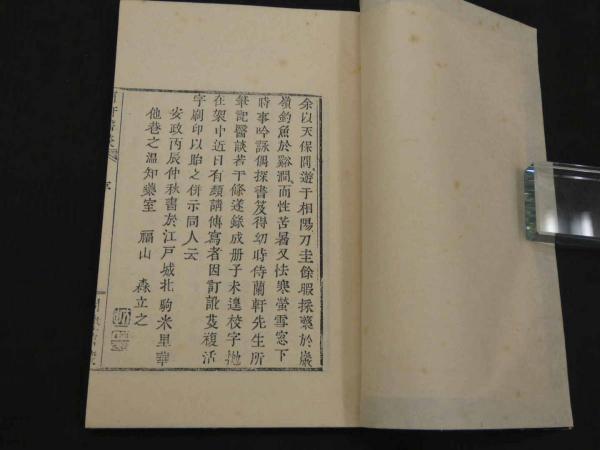 余以天保間遊于相陽刀圭餘暇採藥於巖
嶺釣魚於谿澗而性苦暑又怯寒螢雪窓下
時事吟詠偶探書笈得幼時侍蘭軒先生所
筆記醫談若干條遂錄成册子未遑校字拋
在架中近日有頻請傳寫者因訂訛芟複活
字刷印以貽之併示同人云
安政丙辰仲秋書於江戸城北駒米里華
他巷之溫知藥室 福山 森立之